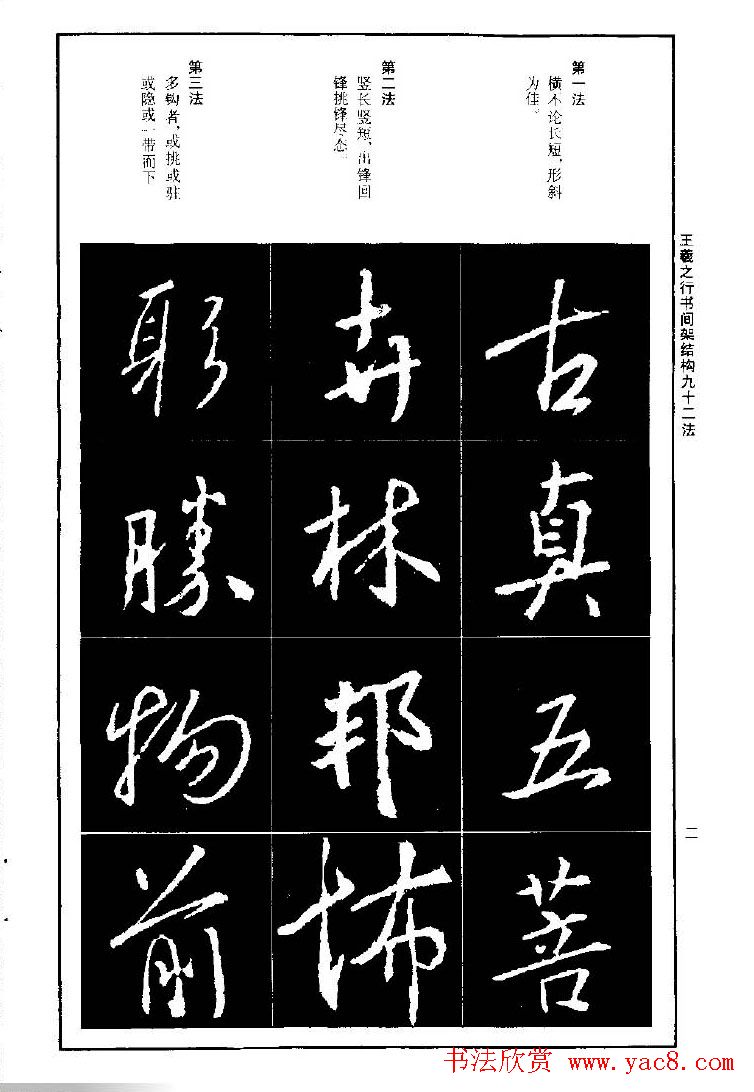 王羲之行书间架结构九十二法
二
第一法
横不论长短，形斜
为佳。
第二法
竖长竖短，出锋回
锋挑锋尽态。
第三法
多钩者，或挑或驻
或隐或一带而下
古真五菩
卉林邦怖
躬勝物前
书法欣赏 www.yac8.com